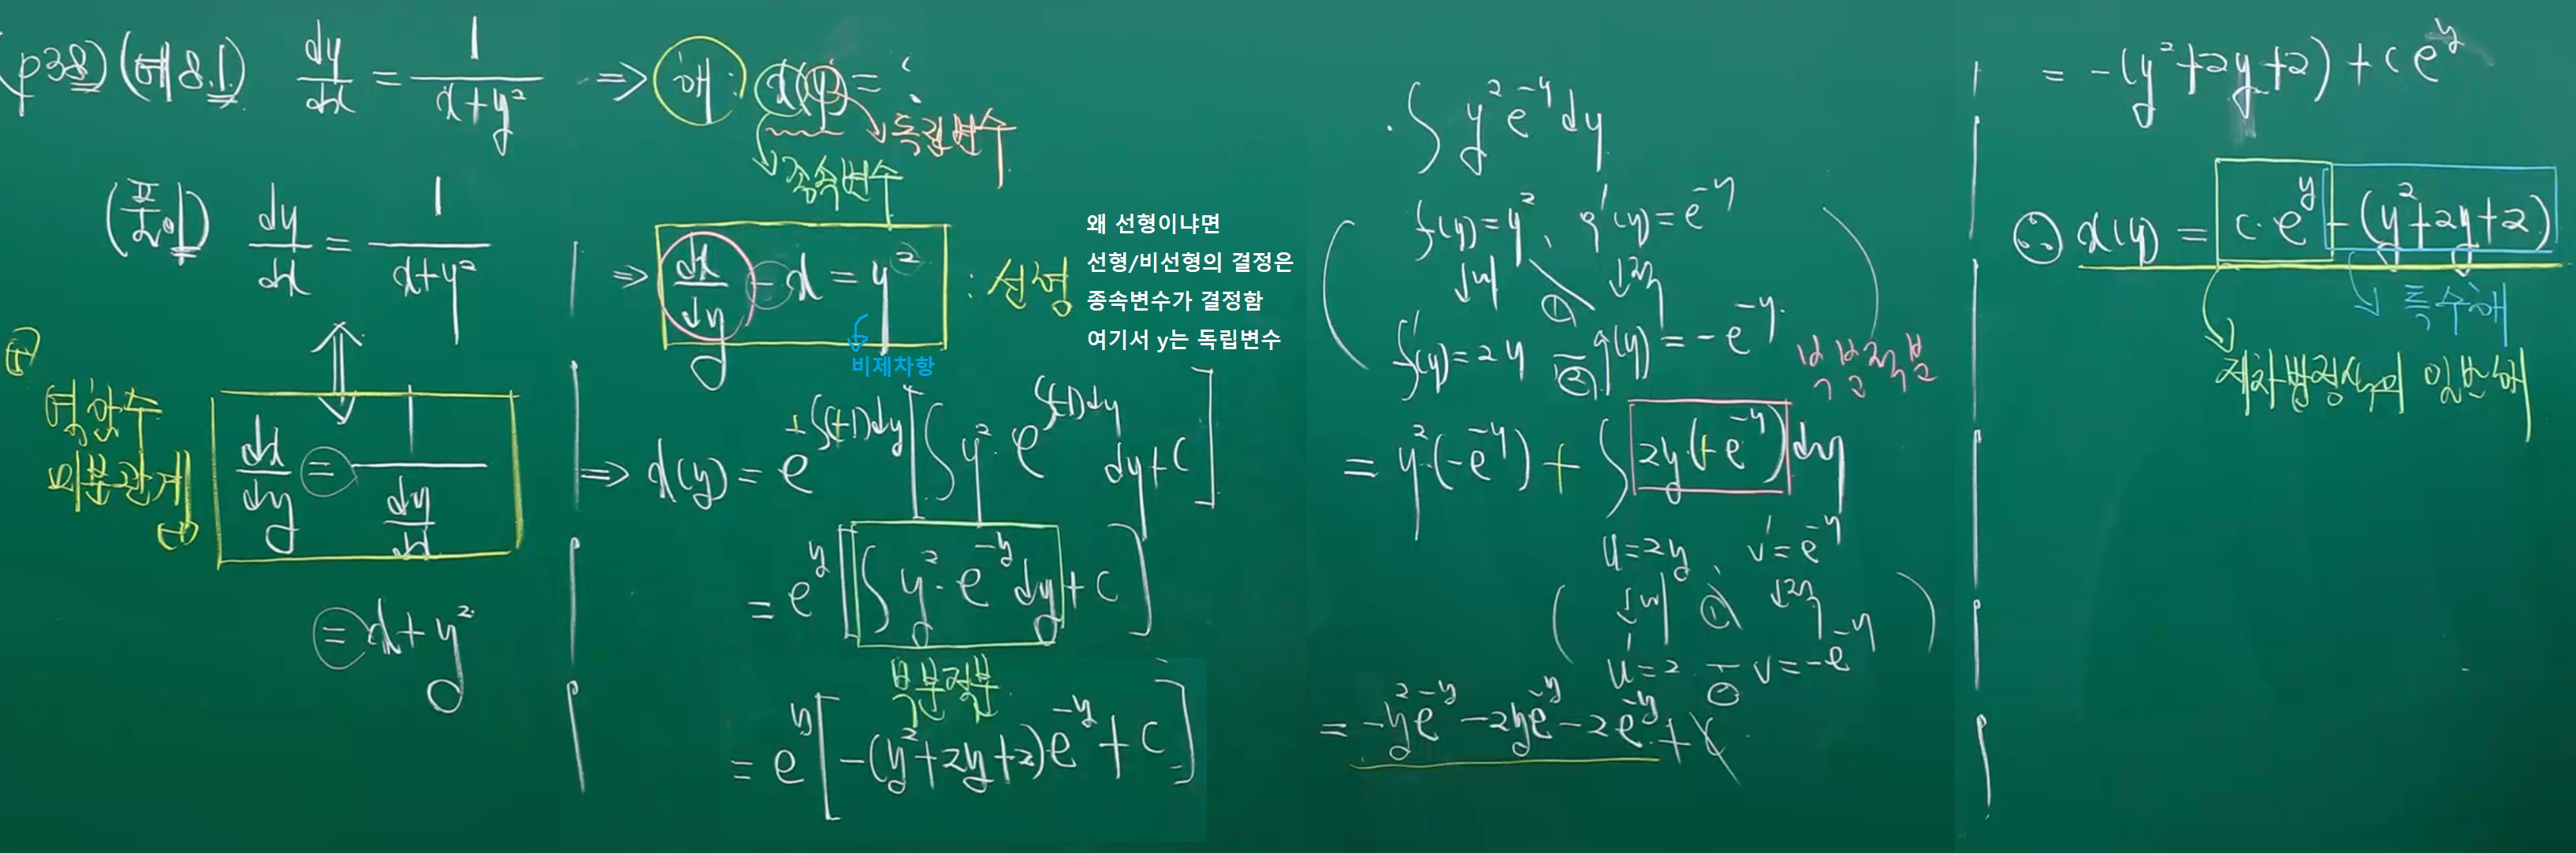 (p38) (예 8.1) dy/dx = 1/(x+y²) ⇒ 해: x(y) = ?
독립변수
종속변수
(풀이) dy/dx = 1/(x+y²)
역함수
미분관계
dx/dy = 1/(dy/dx)
= x+y²
⇒ dx/dy - x = y² : 선형
비제차항
왜 선형이냐면
선형/비선형의 결정은
종속변수가 결정함
여기서 y는 독립변수
⇒ x(y) = e^(+∫(+1)dy) [∫y²·e^(∫(-1)dy) dy + C]
= e^y [∫y²·e^(-y) dy + C]
부분적분
= e^y [-(y²+2y+2)e^(-y) + C]
· ∫y²e^(-y)dy
f(y)=y², g'(y)=e^(-y)
↓미 ① ↓적
f'(y)=2y ② g(y)=-e^(-y)
부분적분
= y²·(-e^(-y)) + ∫2y·(+e^(-y))dy
u=2y, v'=e^(-y)
↓미 ① ↓적
u'=2 ② v=-e^(-y)
= -y²e^(-y) - 2ye^(-y) - 2e^(-y) + C
= -(y²+2y+2) + Ce^y
∴ x(y) = C·e^y - (y²+2y+2)
특수해
제차방정식의 일반해